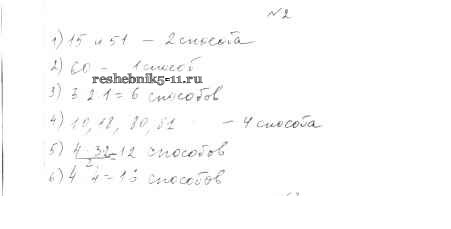 №2
1) 15 и 51 – 2 способа
2) 60 – 1 способ
reshebnik5-11.ru
3) 3 2 1 = 6 способов
4) 10, 18, 80, 81 – 4 способа
5) 4 · 3 2 = 12 способов
6) 4 4 = 16 способов